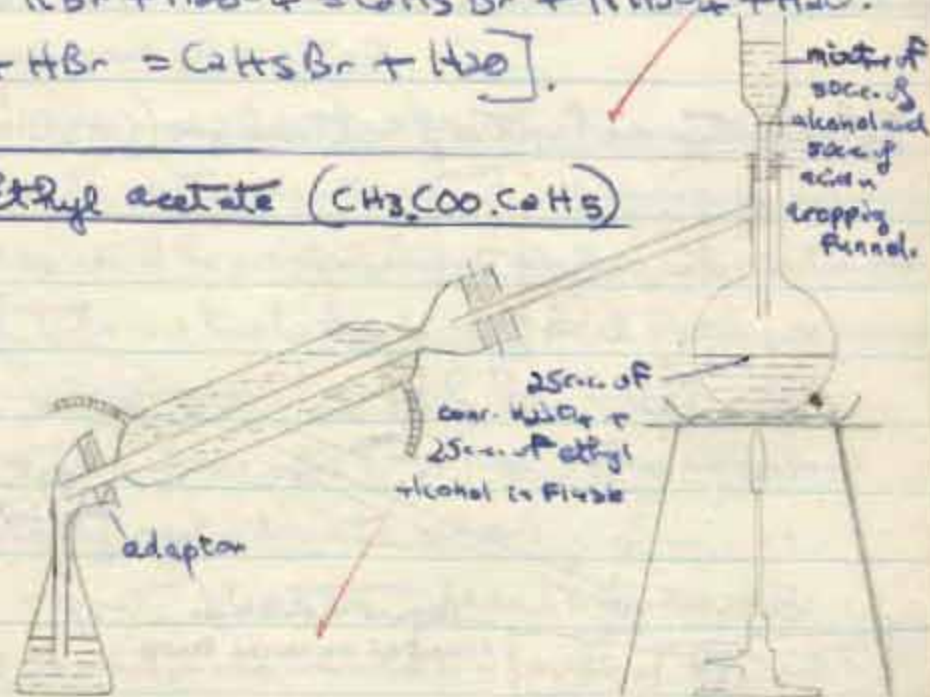 KBr + H2SO4 = C2H5Br + KHSO4 + H2O.
+ HBr = C2H5Br + H2O].
Ethyl acetate (CH3.COO.C2H5)
mixture of
50cc. of
alcohol and
50cc of
acid in
dropping
funnel.
25c.c. of
conc. H2SO4 +
25c.c. of ethyl
alcohol in
adaptor